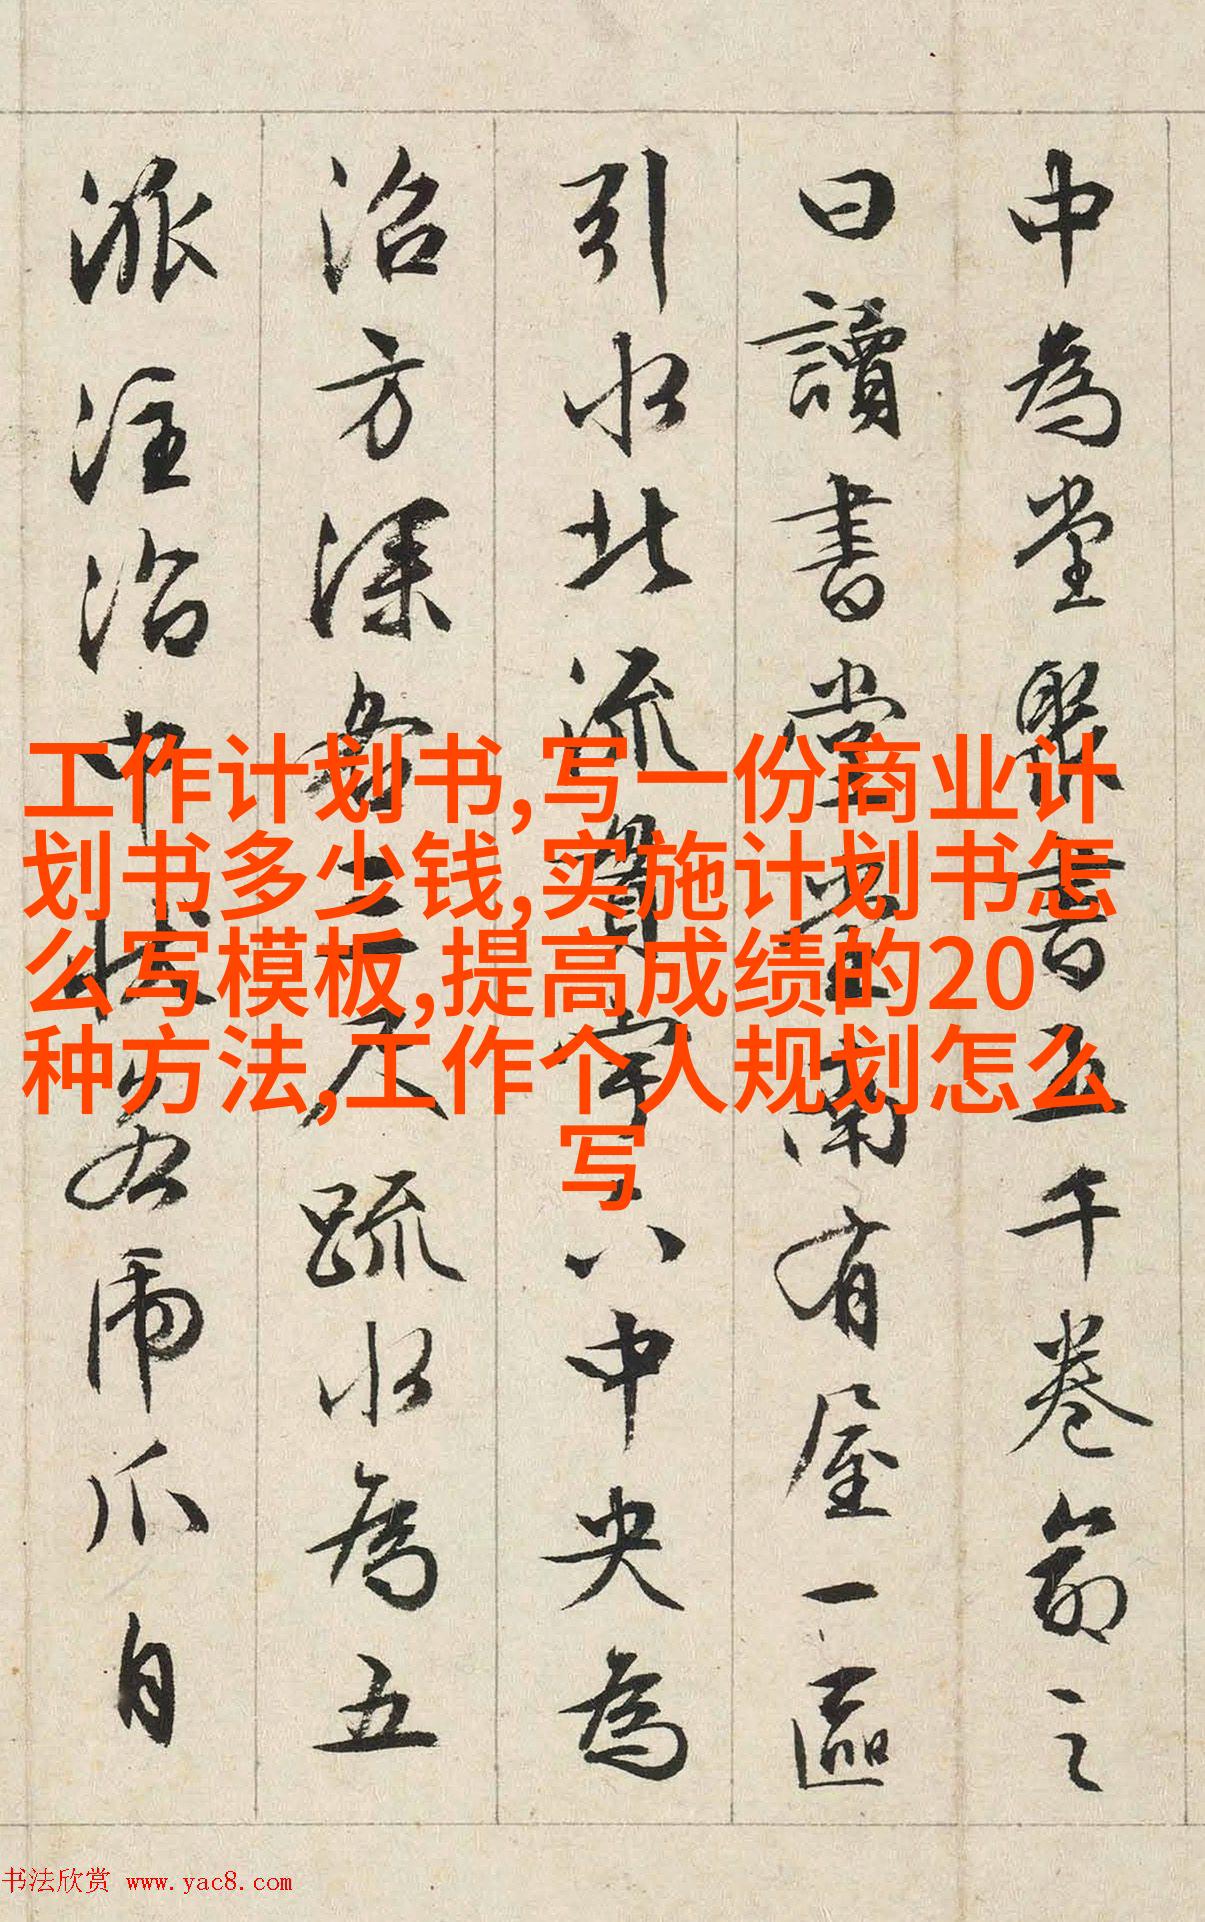 中為堂聚書五千卷命之
曰讀書堂堂南有屋一區
引水北流貫宇下中央為
沼方深各三尺疏水為五
派注沼中狀若虎爪自
工作计划书,写一份商业计
划书多少钱,实施计划书怎
么写模板,提高成绩的20
种方法,工作个人规划怎么
写
书法欣赏 www.yac8.com